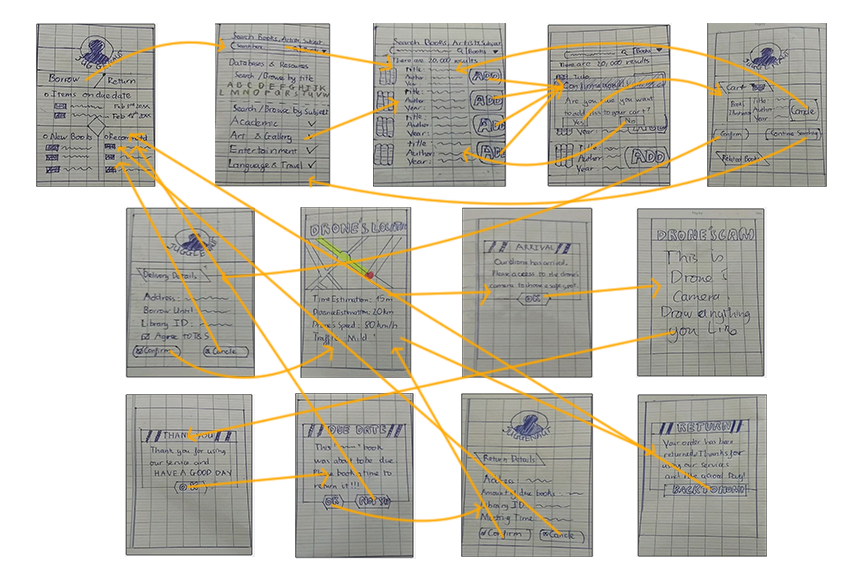 Borrow
Return
Items on due date
New Books
Search Books, Artists, Subject
Databases & Resources
Search /Browse by title
A B C D E F G H I J K
L M N O P Q R S T U V W
Search /Browse by Subject
Academic ✓
Art & Gallery
Entertainment ✓
Language & Travel ✓
Search Books, Artists, Subject
[Books
There are 20,000 results
Title:
Author
Year
ADD
Title:
Author:
Year:
Title:
Author:
Year:
Title:
Author:
Year:
[Books
There are 20,000 results
Title:
Are you sure you want
to add this to your cart?
Yes
No
Year
Title:
Author:
Year
ADD
Cart
Title
Author
Year
Cancle
Confirm
Related Book
Delivery Details
Address:
Borrow Until:
Library ID:
Agree to T&S
Confirm
Cancle
DRONE'S LOCATION
Time Estimation: 15m
Distance Estimation: 20km
Drone's Speed: 80km/h
Traffic: Mild
ARRIVAL
Our drone has arrived.
OK
DRONE'S CAM
This is
Drone's
Camera.
Draw anything
you Like
THANK YOU
Thank you for using
our service and
HAVE A GOOD DAY
OK
DUE DATE
This book
was about to be due
Please book a time to
return it!!!
OK
Not yet
Return Details
Access:
Amount of due books:
Library ID:
Meeting Time:
Confirm
Cancle
RETURN
Your order has been
returned! Thanks for
using our services
BACK TO HOME